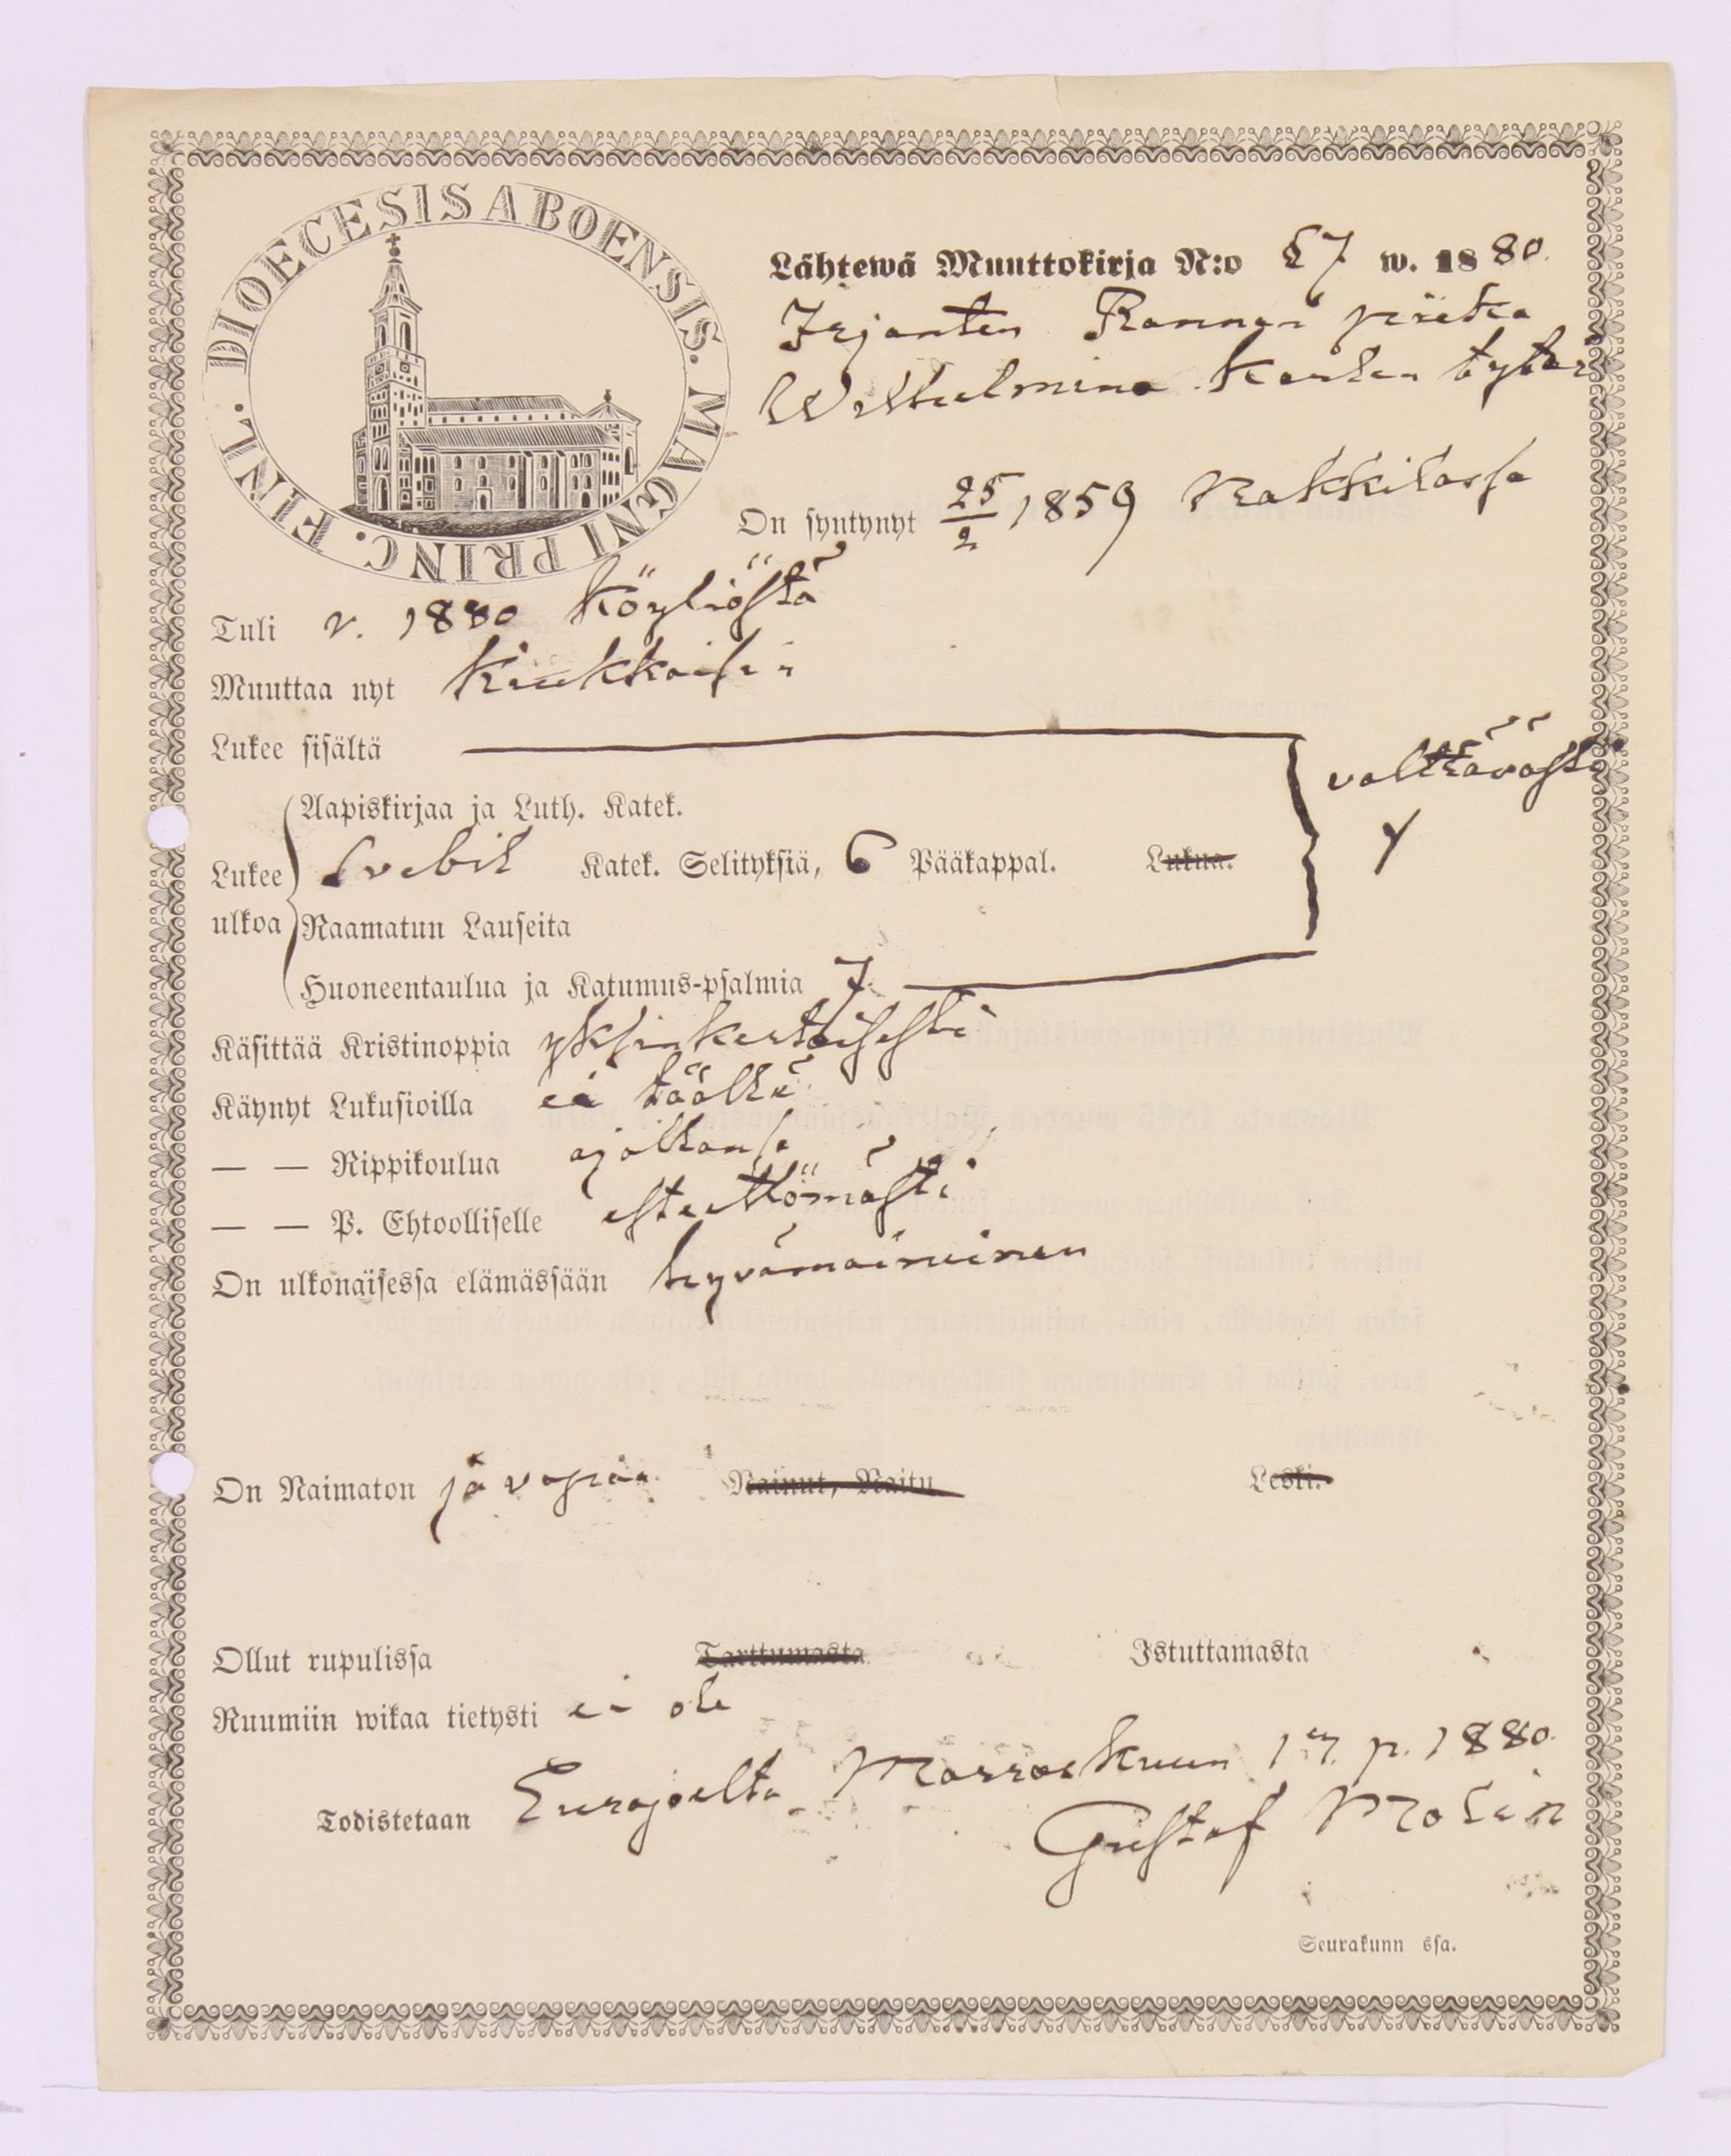 DIOECESIS ABOENSIS. MAGNI PRINC. FINL.
Lähtewä Muuttokirja N:o 57 w. 1880.
Irjanten Rannan piika
Wilhelmina Karlen tytär
On syntynyt 25/2 1859 Nakkilassa
Tuli v. 1880 Köyliöstä
Muuttaa nyt Kiukkaisiin
Lukee sisältä
välttävästi
Aapiskirjaa ja Luth. Katek.
Lukee ulkoa Svebil Katek. Selityksiä, 6 Pääkappal. Lukua.
Raamatun Lauseita
Huoneentaulua ja Katumus-psalmia 7.
Käsittää Kristinoppia yksinkertaisesti
Käynyt Lukusioilla ei täällä
— — Rippikoulua ajallansa
— — P. Ehtoolliselle esteettömästi
On ulkonaisessa elämässään hyvämaineinen
On Naimaton ja vapaa Nainut, Naitu Leski.
Ollut rupulissa Tarttumasta Istuttamasta
Ruumiin wikaa tietysti ei ole
Todistetaan Eurajoelta Marraskuun 17. p. 1880.
Gustaf Molin
Seurakunn ssa.